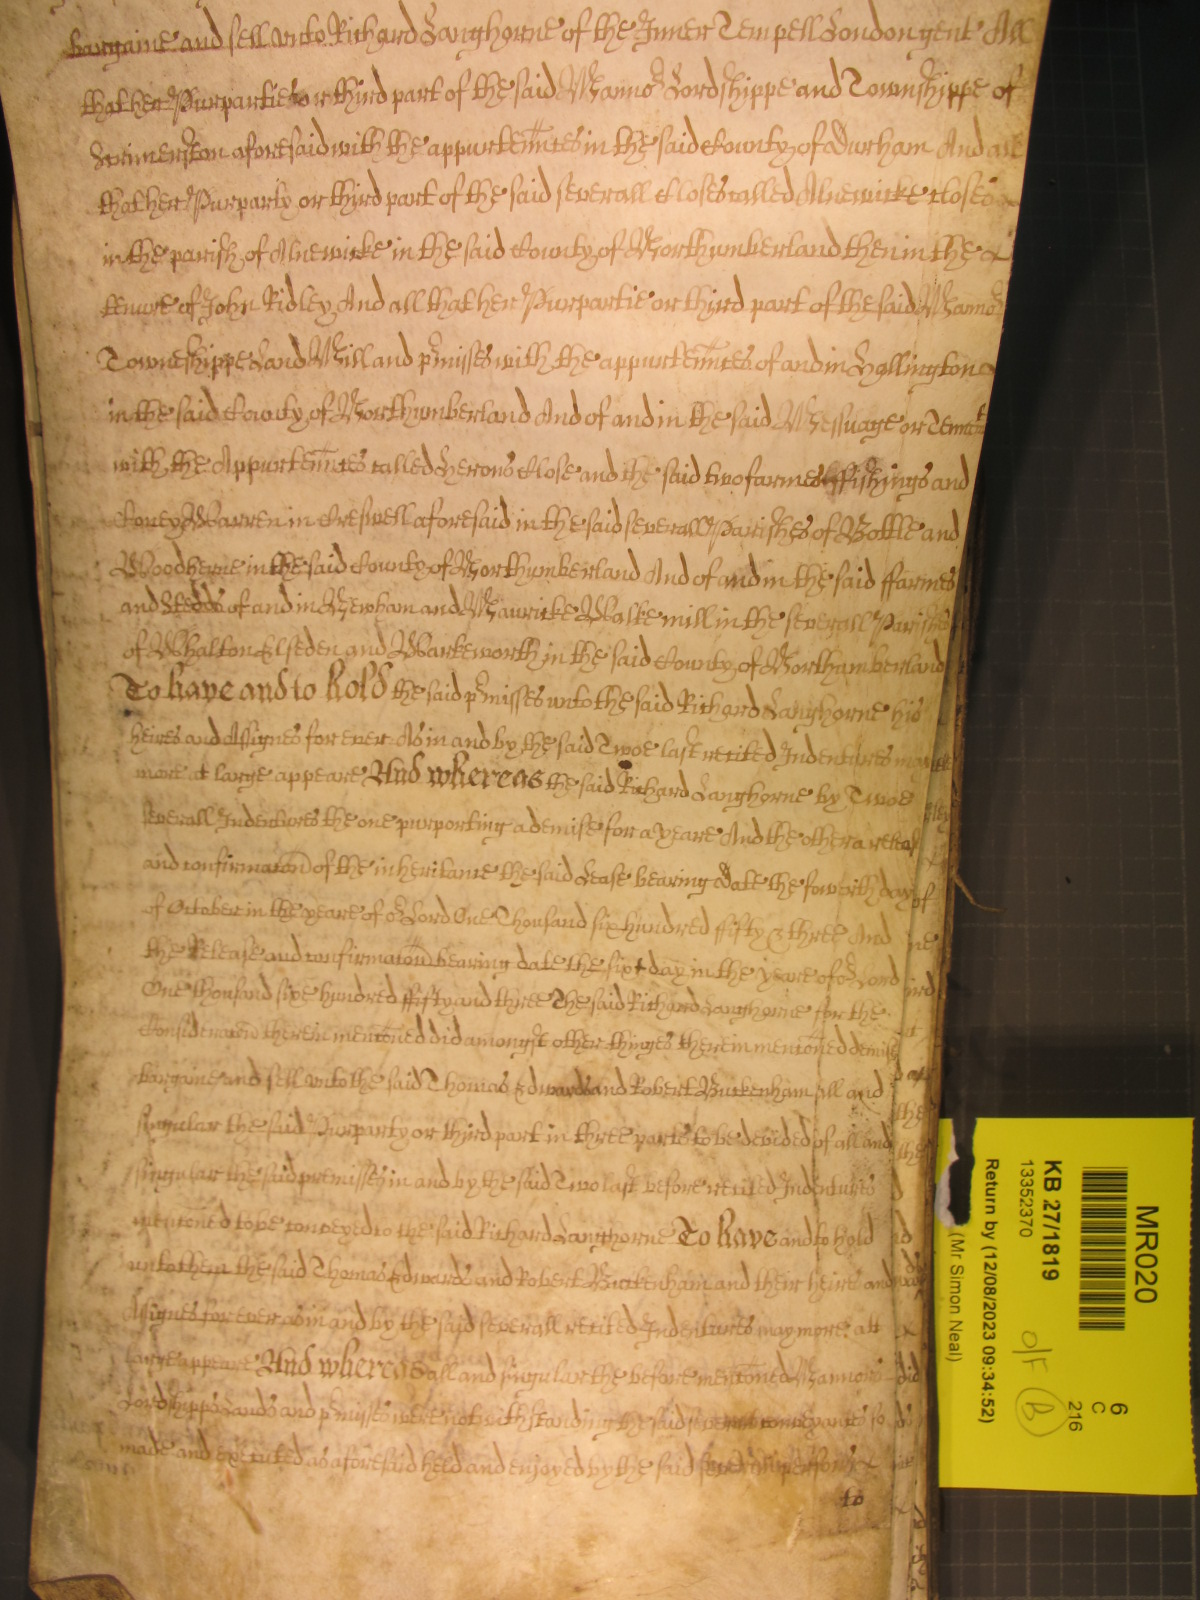 bargaine and sell unto Richard Langhorne of the Inner Tempell London gent All
that her Purpartie or third part of the said Manno Lordshippe and Townshippe of
aforesaid with the appurtennces in the said County of Durham And all
that her Purparty or third part of the said severall Closes called Alnewicke Closes
in the parish of Alnewicke in the said County of Northumberland then in the
tenure of John Ridley And all that her Purpartie or third part of the said Manno
Towneshippe Land Mill and pmisses with the appurtennces of and in Yallington
in the said County of Northumberland And of and in the said Messuage or Tenemt
with the Appurtennces called Herons Close and the said two farmes ffishings and
Coney Warren in Creswell aforesaid in the said severall Parishes of Bottle and
Woodherne in the said County of Northumberland And of and in the said ffarmes
and of and in Newham and Mauricke Walke mill in the severall Parishes
of Whalton Elseden and Warkeworth in the said County of Northumberland
To have and to hold the said pmisses unto the said Richard Langhorne his
heires and Assignes for ever As in and by the said Twoe last recited Indentures may
more at large appeare And whereas the said Richard Langhorne by Twoe
severall Indentures the one purporting a demise for a yeare And the other a release
and confirmacon of the inheritance the said Lease bearing date the fowerth day of
of October in the yeare of or Lord One Thousand six hundred fifty & three And
the Release and confirmacon bearing date the sixt day in the yeare of or Lord
One thousand sixe hundred ffifty and three The said Richard Langhorne for the
Consideracon therein mentoned did amongst other thinges therein mentoned demise
bargaine and sell unto the said Thomas Edwards and Robert Buckenham all and
singular the said Purparty or third part in three parts to be devided of all and
singular the said premisses in and by the said Two last before recited Indentures
mentoned to be conveyed to the said Richard Langhorne To have and to hold
unto them the said Thomas Edwards and Robert Buckenham and their heires and
Assignes for ever as in and by the said severall recited Indentures may more att
large appeare And whereas all and singular the before mentoned Mannors
Lordshipps Lands and pmisses were notwithstanding the said conveyances so
made and executed as aforesaid held and enjoyed by the said
to
MR020
KB 27/1819
13352370
Return by (12/08/2023 09:34:52)
(Mr Simon Neal)
6
C
216
O/F
B